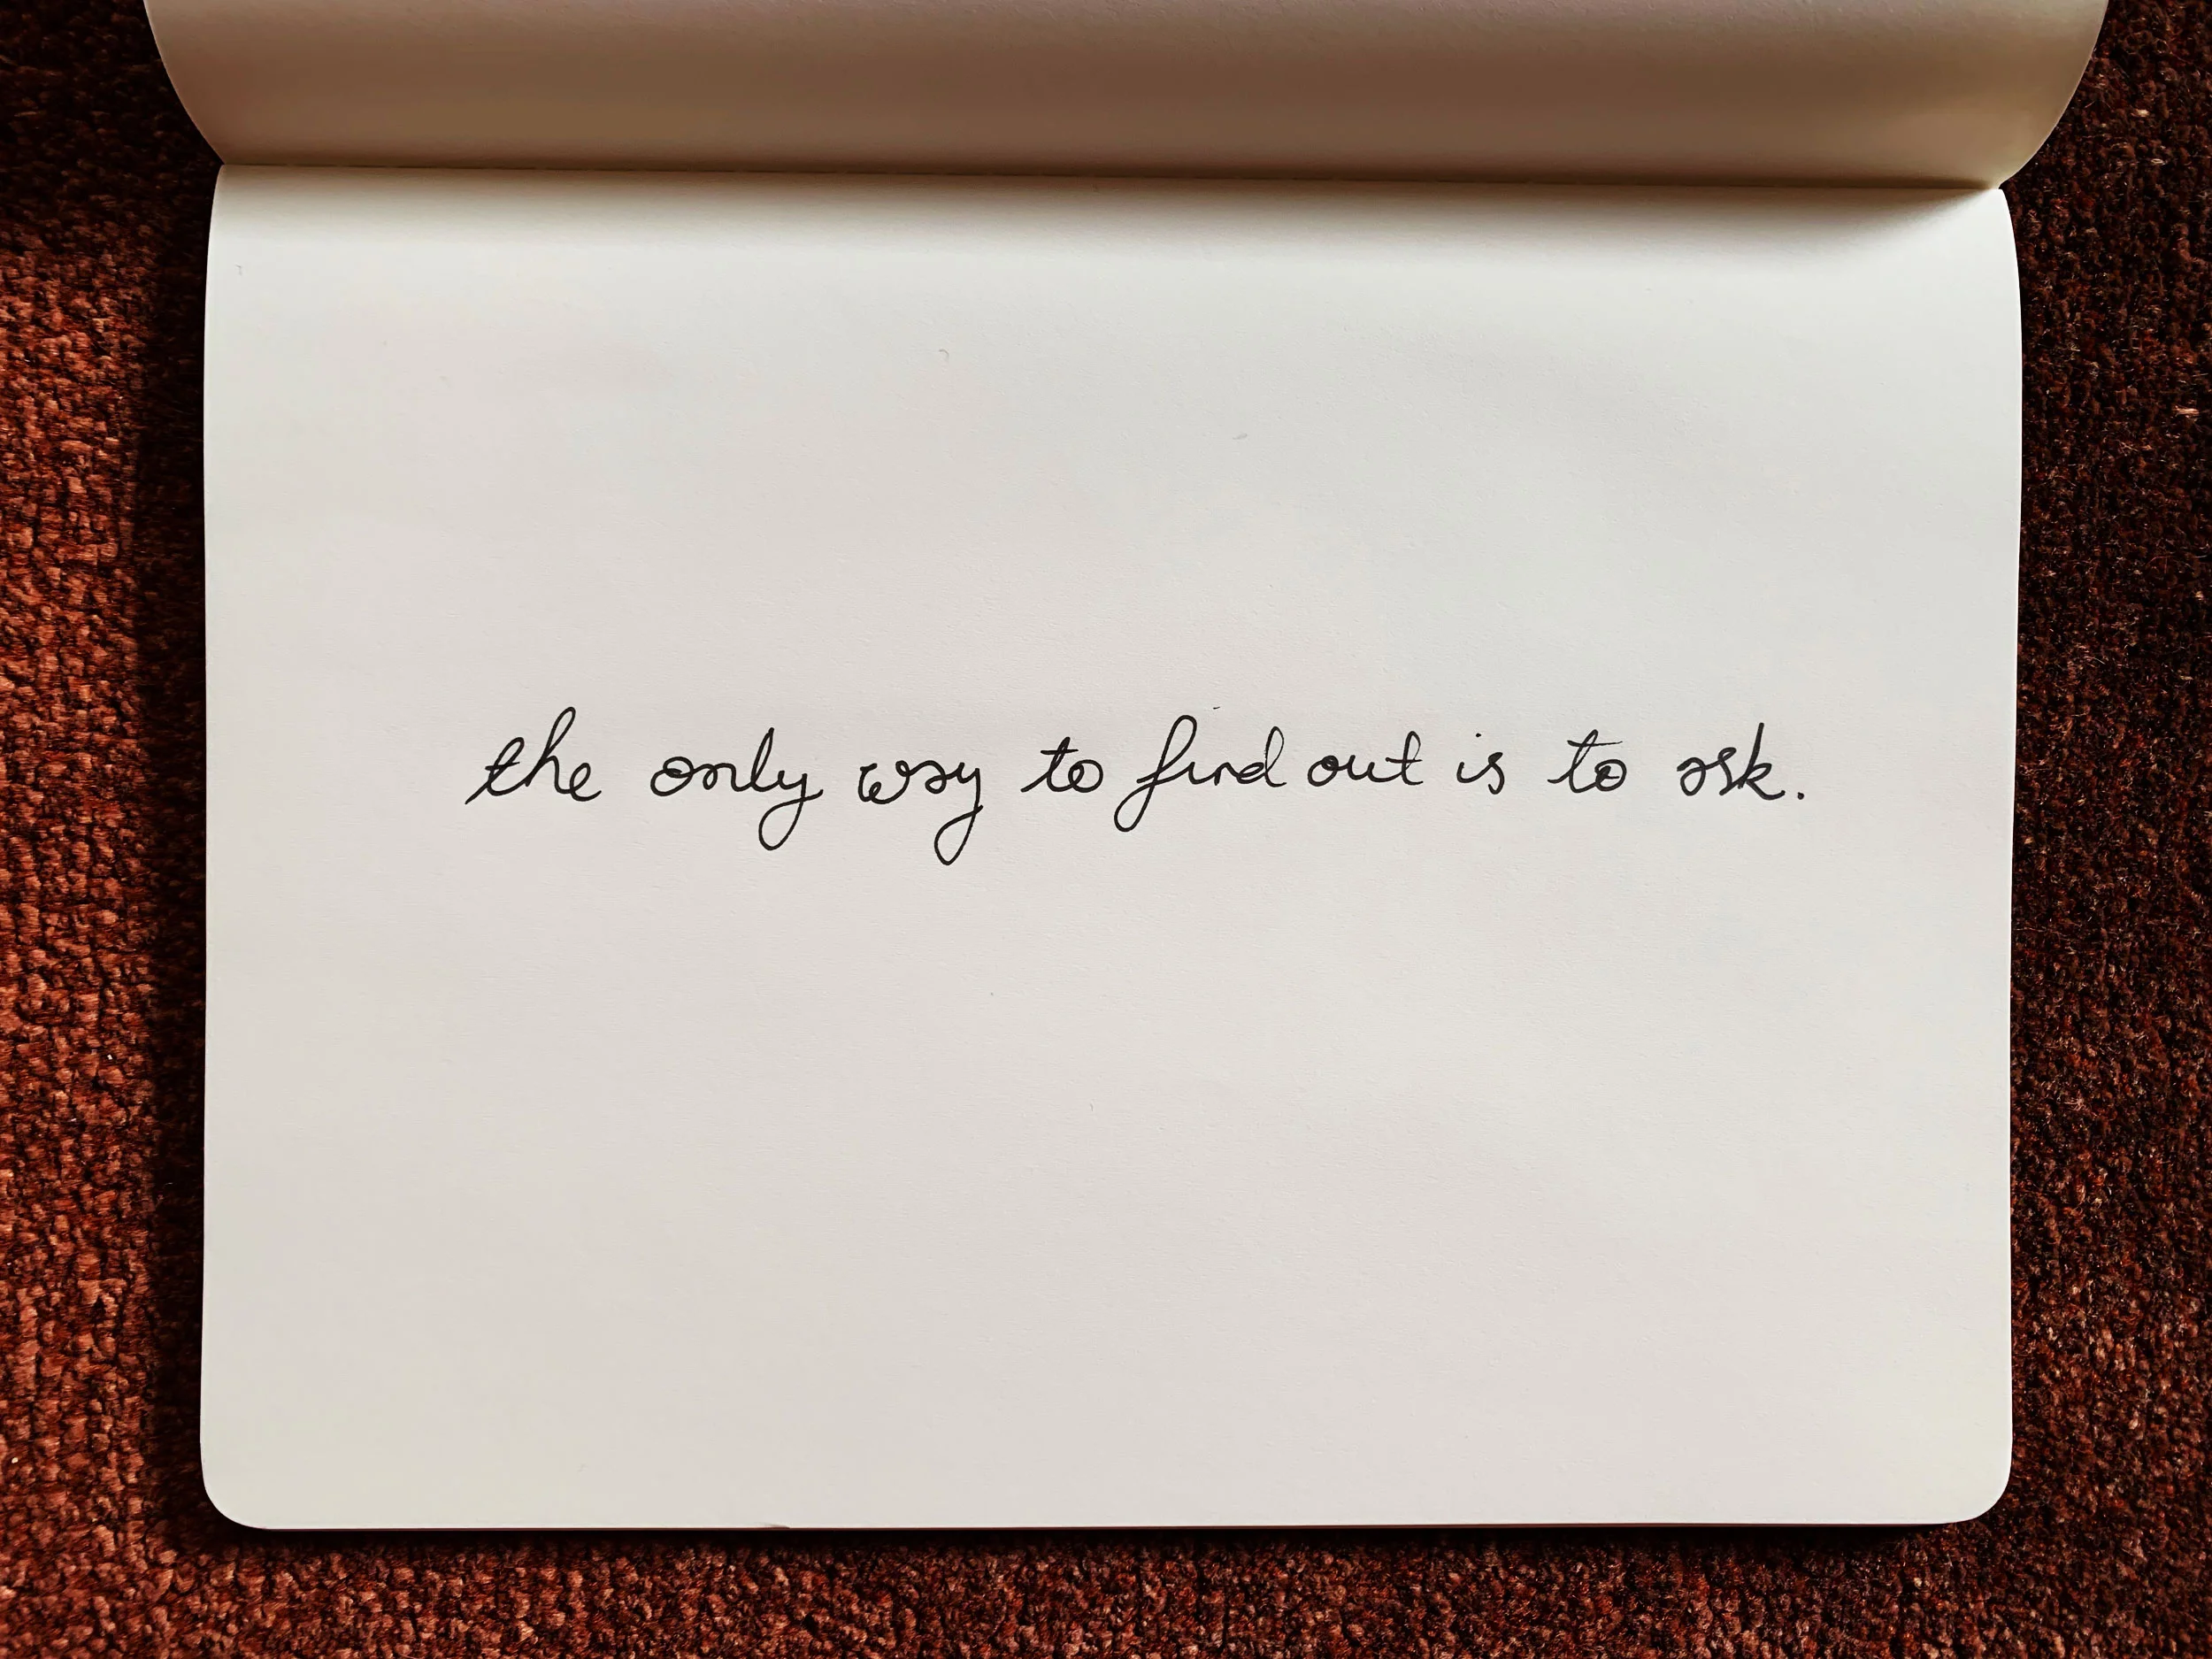 the only way to find out is to ask.